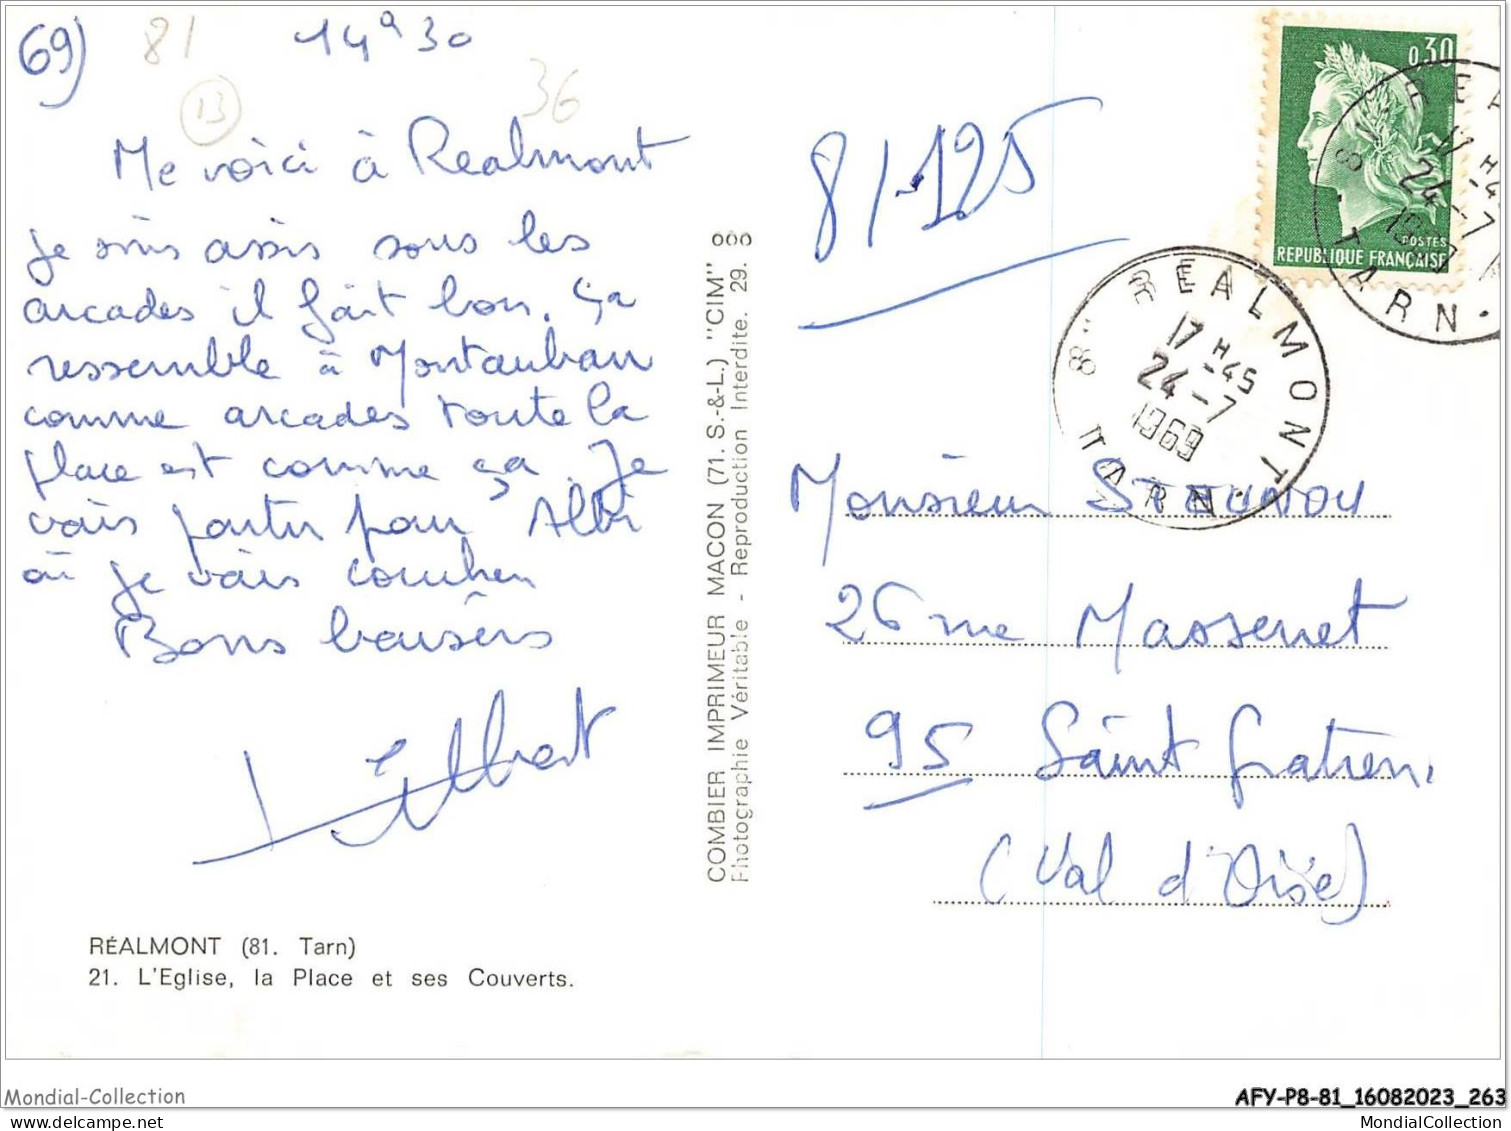 69)
81
14h30
13
36
Me voici à Réalmont
je suis assis sous les
arcades il fait bon. ça
ressemble à Montauban
comme arcades toute la
place est comme ça. Je
vais partir pour Albi
où je vais coucher
Bons baisers
Albert
RÉALMONT (81. Tarn)
21. L'Eglise, la Place et ses Couverts.
COMBIER IMPRIMEUR MACON (71. S.-&-L.) "CIM"
Photographie Véritable - Reproduction Interdite. 29.
81-125
0,30
POSTES
REPUBLIQUE FRANÇAISE
REALMONT
17 H 45
24-7
1969
TARN
17 H 4
24-7
TARN
Monsieur
26 rue Massenet
95 Saint Gratien
(Val d'Oise)
Mondial-Collection
AFY-P8-81_16082023_263
MondialCollection